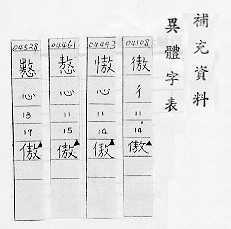 補充資料
異體字表
04528 04461 04443 04108
慠
心 心 心 彳
13 11 11 11
17 15 14 14
傲 傲 傲 傲